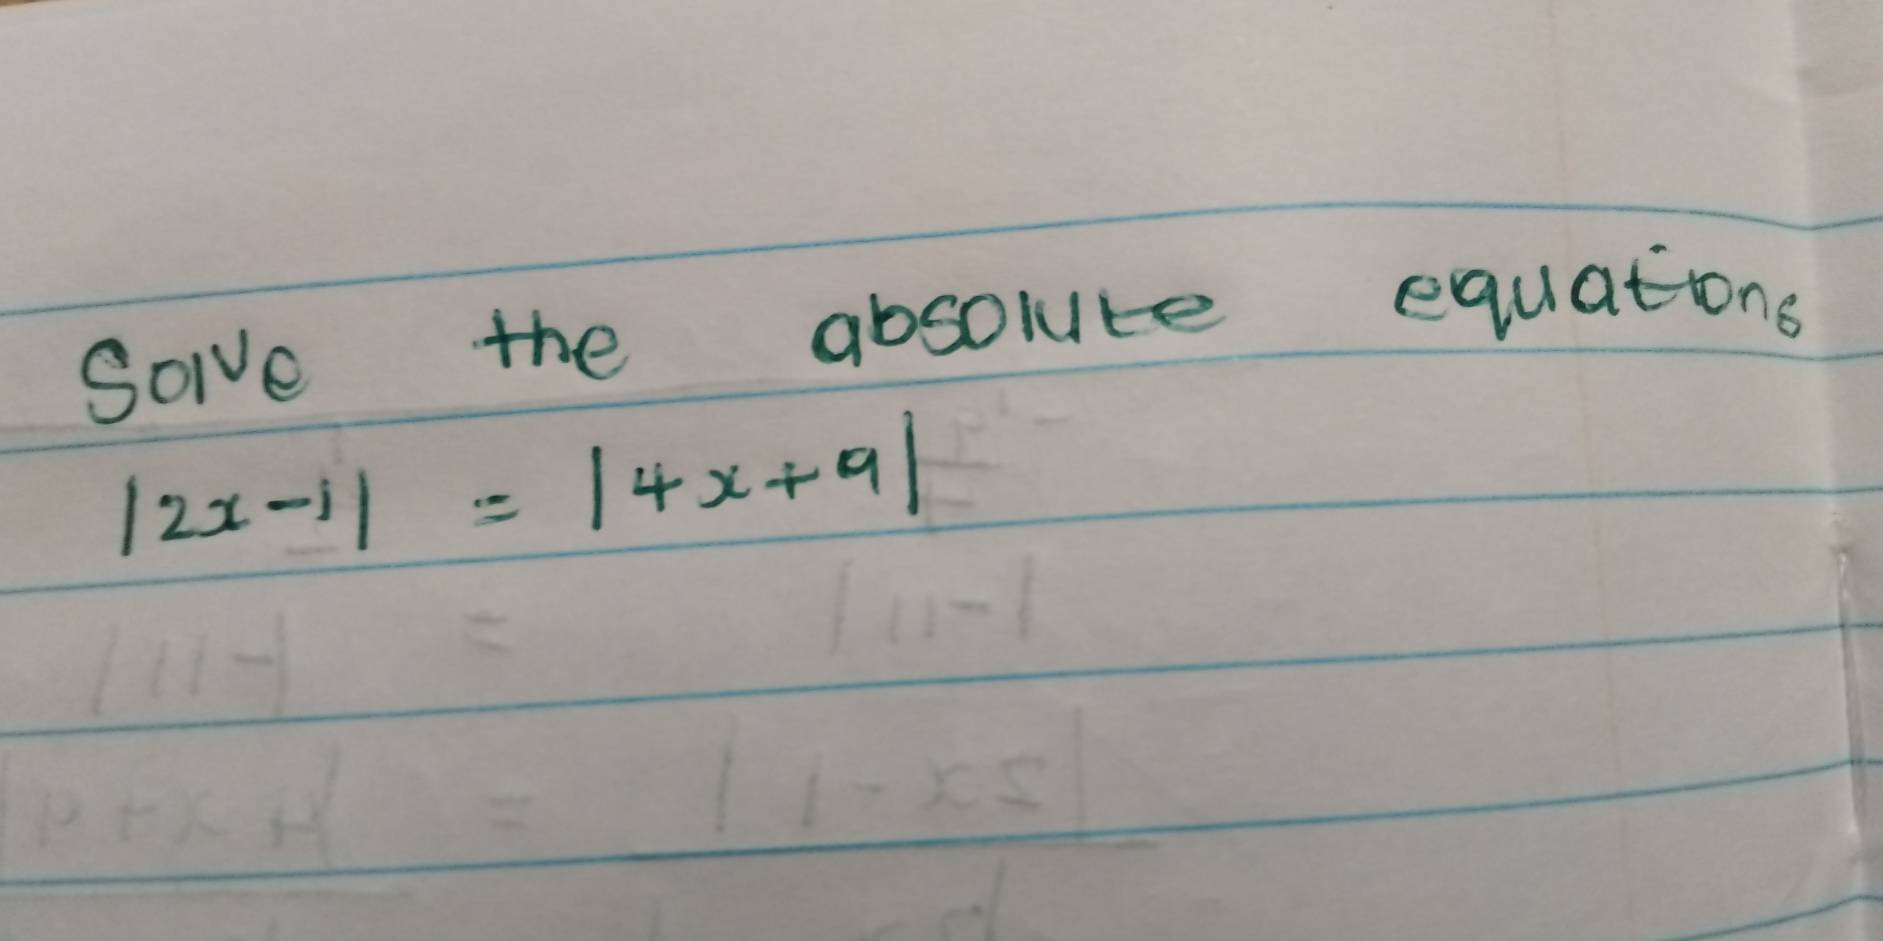 Solve the absolute equations
|2x-1| = |4x+9|